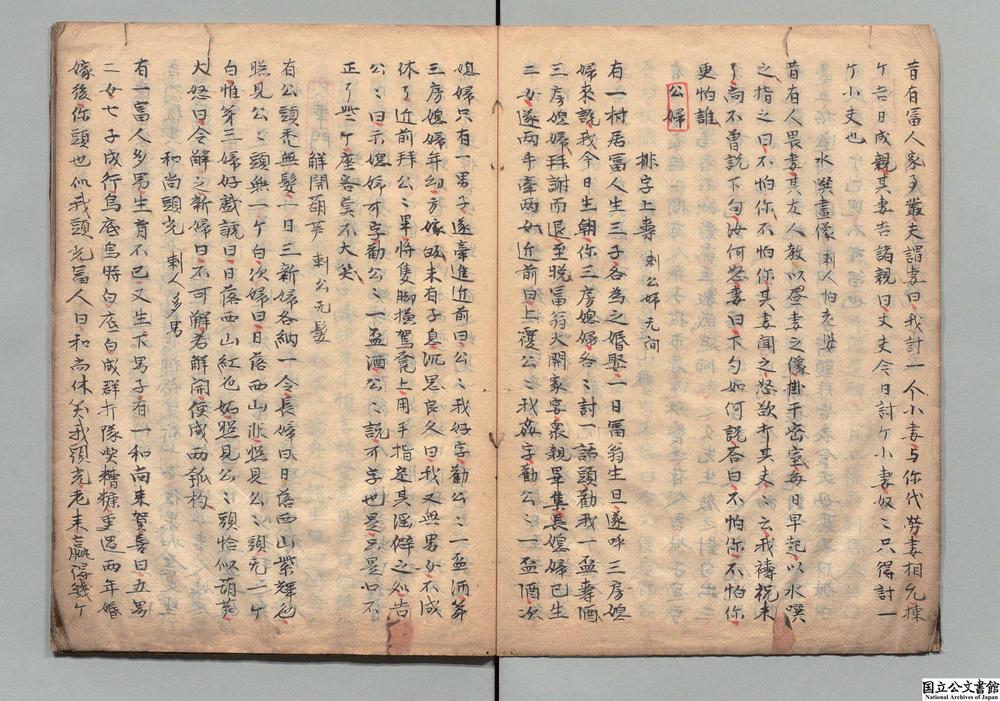 昔有富人家多叢夫謂妻曰我討一个小妻与你代劳妻相允揀
ケ吉日成親其妻告諸親曰丈夫今日討ケ小妻奴〻只得討一
ケ小夫也
水噀畫像 刺人怕老婆
昔有人畏妻其友人教以畫妻之像掛于密室每日早起以水噀
之指之曰不怕你不怕你其妻聞之怒欲打其夫〻云我禱祝未
了尚不曾説下句汝何怒妻曰下句如何説答曰不怕你不怕你
更怕誰
公婦
排字上壽 刺公婦无間
有一村居富人生三子各為之婚娶一日富翁生旦遂呼三房媳
婦來説我今日生朝你三房媳婦各〻討一話頭勸我一盃壽酒
三房媳婦拜謝而退至晚富翁大開家宴衆親畢集長媳婦已生
二女遂两手牽两女近前曰上覆公〻我姦字勸公〻一盃酒次
媳婦只有一男子遂牽進近前曰公〻我好字勸公〻一盃酒第
三房媳婦年幼方嫁婦未有子息沉思良久曰我又無男女不成
休了近前拜公〻畢將隻脚橫駕凳上用手指定其淫僻之処告
公〻曰示媳婦可字勸公〻一盃酒公〻説可字也是只是口不
正了些ケ座客莫不大笑
解開葫芦 刺公无髮
有公頭禿無髮一日三新婦各納一令長婦曰日落西山紫輝色
照見公〻頭無一ケ白次婦曰日落西山非照見公〻頭无一ケ
白惟第三婦好戲謔曰日落西山紅色妬照見公〻頭恰似葫芦
大怒曰令解之新婦曰不可解若解開便成两瓠杓
和尚頭光 刺人多男
有一富人多男生育不已又生下男子有一和尚来賀喜曰五男
二女七子成行烏底烏時白底白成群打隊柴糟糠重過两年婚
嫁後你頭也似我頭光富人曰和尚休笑我頭光老来贏得幾ケ
国立公文書館
National Archives of Japan